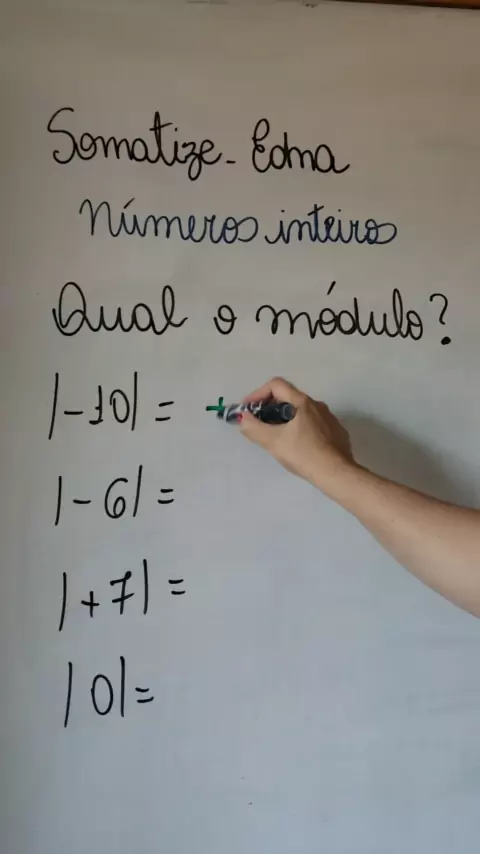 Somatize - Edna
Números inteiros
Qual o módulo?
|-10| = +
|-6| =
|+7| =
|0| =